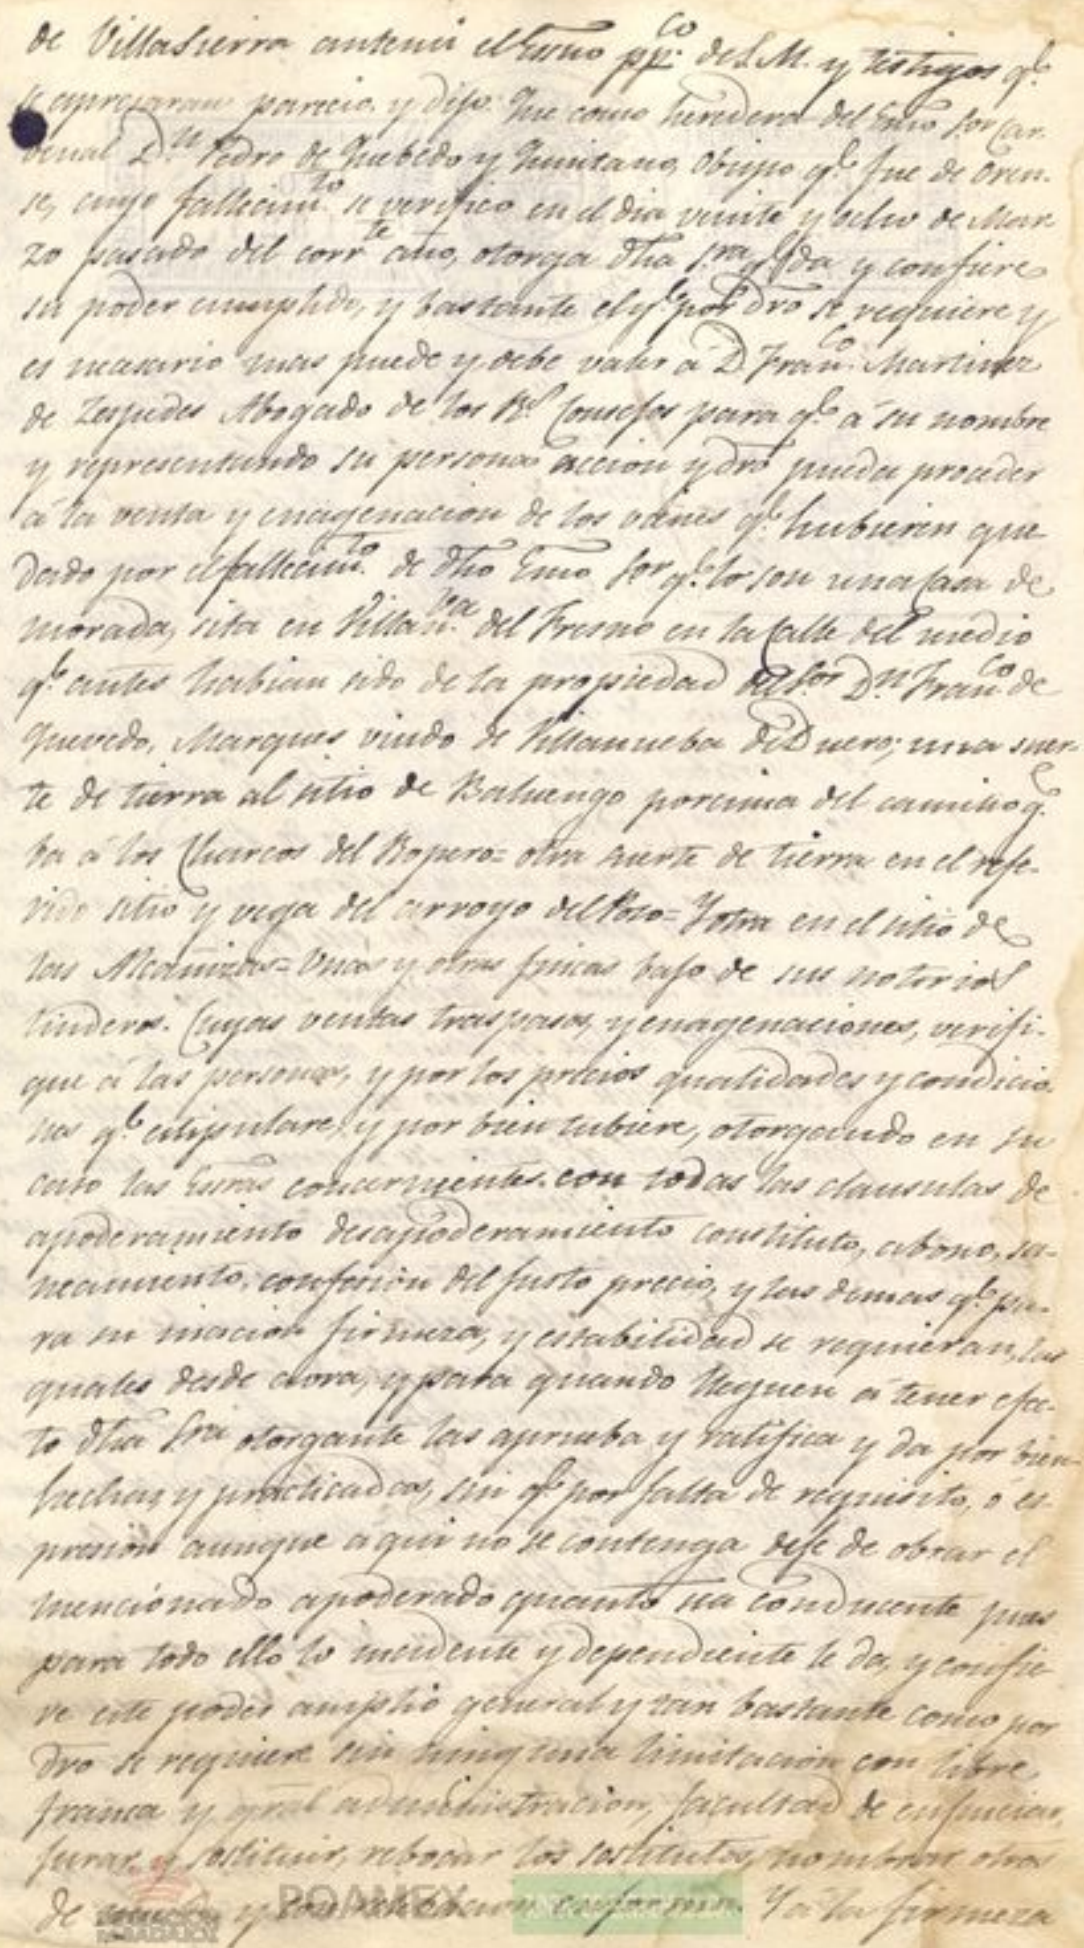 de Villasierra antemi el Essno ppco. de S.M. y testigos qe.
se apresaran parecio y dijo: Que como heredera del Emo Sor Car-
denal Dn. Pedro de Quebedo y Quintano, Obispo qe. fue de Oren-
se, cuyo fallecimto. se verifico en el dia veinte y ocho de Mar-
zo pasado del corrte. año, otorga dha Sra. qe. da y confiere
su poder cumplido, y bastante el qe. por dro se requiere y
es necesario mas puede y debe valer a D. Franco. Martinez
de Zespedes Abogado de los Rs. Consejos para qe. á su nombre
y representando su persona accion y dro pueda proceder
á la venta y enagenacion de los vienes qe. hubieren que
dado por el fallecimto. de dho Emo Sor qe. lo son una Casa de
morada, sita en Villanva. del Fresno en la Calle del medio
qe. antes habian sido de la propiedad del Sor Dn. Franco. de
Quevedo, Marques viudo de Villanueba del Duero; una suer-
te de tierra al sitio de Baluengo porcima del camino qe.
ba á los Charcos del Ropero= otra suerte de tierra en el refe-
rido sitio y vega del arroyo del Pozo= Y otra en el sitio de
las Alcañizas= y otras fincas bajo de sus notorios
linderos. Cuyas ventas traspasos, y enagenaciones, verifi-
que á las personas, y por los precios qualidades y condicio-
nes qe. estipulare, y por bien tubiere, otorgando en su
caso las Essras concernientes con todas las clausulas de
apoderamiento desapoderamiento constituto, abono, sa-
neamiento, confesion del justo precio, y las demas qe. pa-
ra su firmeza, y estabilidad se requieran, las
quales desde aora, y para quando lleguen á tener efec-
to dha Sra otorgante las aprueba y ratifica y da por bien
hechas y practicadas, sin qe. por falta de requisito, ó es-
presion aunque aqui no se contenga deje de obrar el
mencionado apoderado quanto sea conducente pues
para todo ello lo incidente y dependiente le da, y confie-
re este poder amplio general y tan bastante como por
dro se requiere sin ninguna limitacion con libre,
franca y gral administracion, facultad de enjuiciar,
jurar, y sostituir, rebocar los sostitutos, nombrar otros
de nuebo y con relebacion en forma. Y á la firmeza
ROAMEX